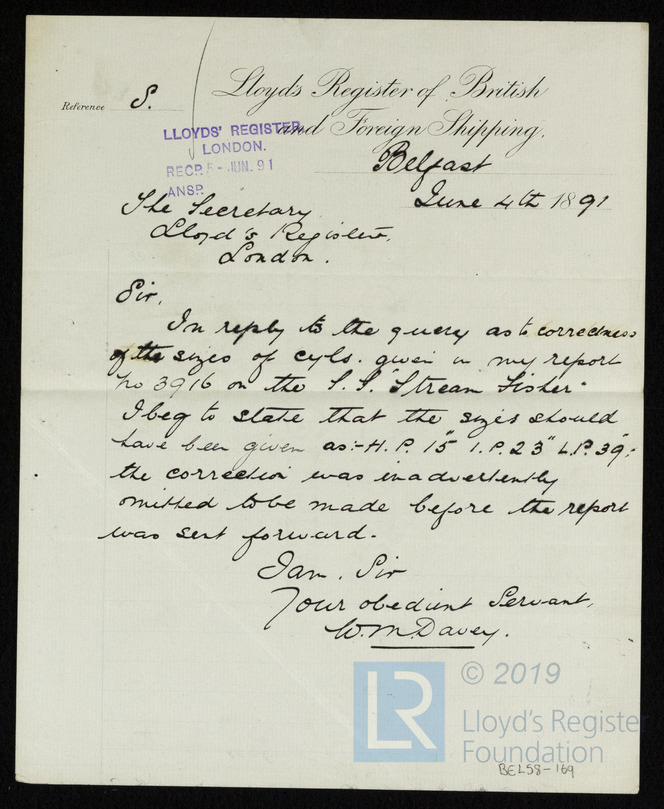 Lloyd's Register of British
Reference S.
and Foreign Shipping.
LLOYDS' REGISTER
LONDON.
RECD 5 - JUN. 91
ANSD.
Belfast
June 4th 1891
The Secretary
Lloyd's Register,
London.
Sir,
In reply to the query as to correctness
of the sizes of cyls. given in my report
No 3916 on the S.S. "Stream Fisher"
I beg to state that the sizes should
have been given as:- H.P. 15" I.P. 23" L.P. 39":
the correction was inadvertently
omitted to be made before the report
was sent forward.
I am, Sir
Your obedient Servant,
W. M. Davey.
LR
© 2019
Lloyd's Register
Foundation
BEL58-169